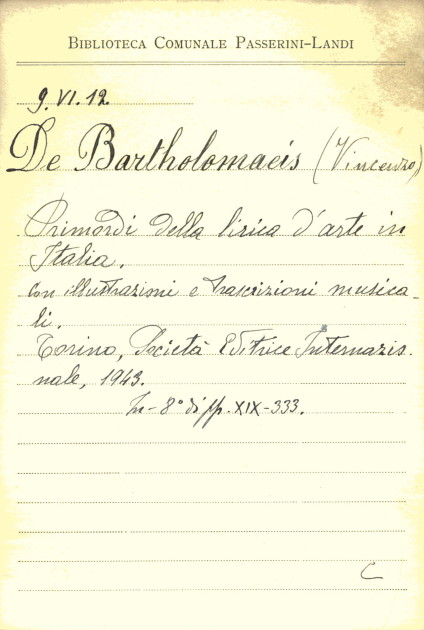 BIBLIOTECA COMUNALE PASSERINI-LANDI
9.VI.12.
De Bartholomaeis (Vincenzo)
Primordi della lirica d'arte in
Italia.
con illustrazioni e trascrizioni musica-
li.
Torino, Società Editrice Internazio-
nale, 1943.
In-8° di pp. XIX-333.
C